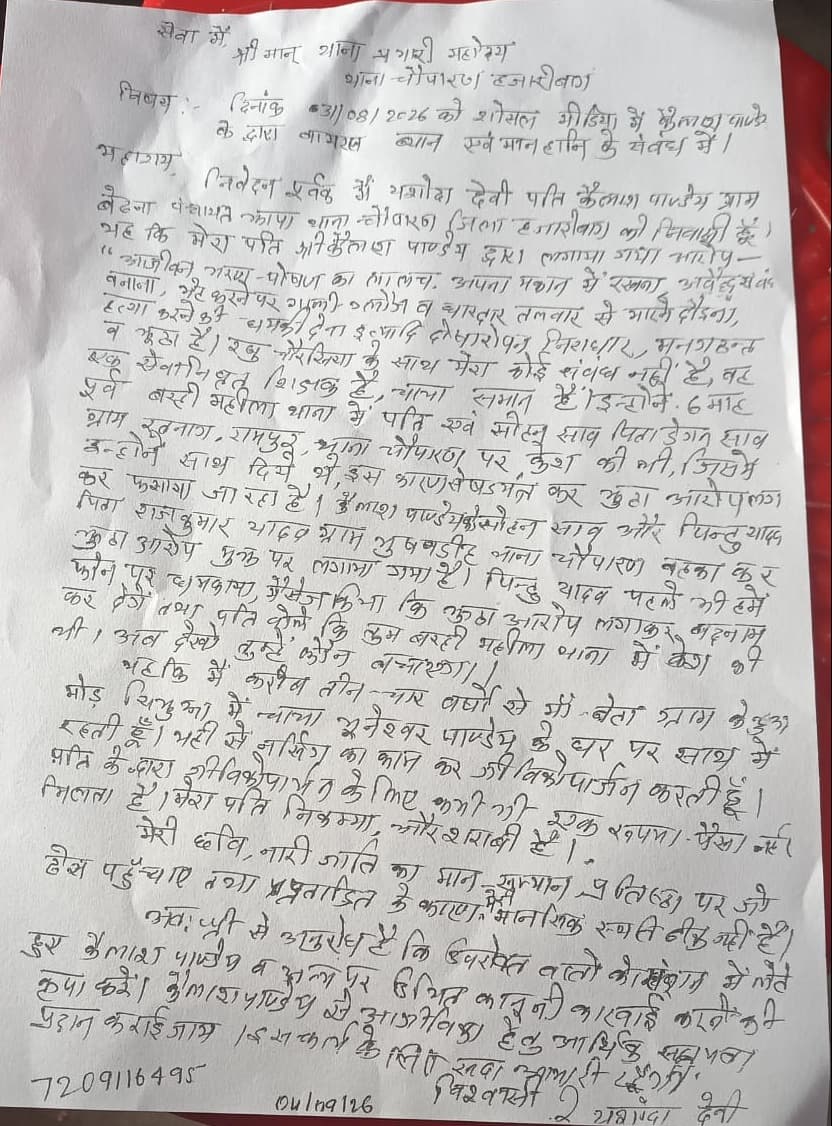 सेवा में,
श्री मान् थाना प्रभारी महोदय
थाना चौपारण हजारीबाग
विषय :- दिनांक 31/08/2026 को शोसल मीडिया में कैलाश पाण्डेय
के द्वारा वायरल ब्यान एवं मानहानि के संबंध में।
महाशय,
निवेदन पूर्वक मैं यशोदा देवी पति कैलाश पाण्डेय ग्राम
बेढना पंचायत झापा थाना चौपारण जिला हजारीबाग की निवासी हूँ।
यह कि मेरा पति श्री कैलाश पाण्डेय द्वारा लगाया गया आरोप –
"आजीवन भरण-पोषण का लालच, अपना मकान में रखना, अवैद्ध संबंध
बनाना, करने पर गाली गलौज व धारदार तलवार से मारने दौड़ना,
हत्या करने की धमकी देना इत्यादि दोषारोपन निराधार, मनगढन्त
व झुठा है। चौरसिया के साथ मेरा कोई संबंध नहीं है, वह
एक सेवानिवृत शिक्षक है, चाचा समान हैं। इन्होंने 6 माह
पुर्व बरही महीला थाना में पति एवं सोहन साव पिता साव
ग्राम रामपुर, थाना चौपारण पर केश की थी, जिसमें
इन्होंने साथ दिये थे, इस कारण से षडयंत्र कर झुठा आरोप लगा
कर फसाया जा रहा है। कैलाश पाण्डेय को सोहन साव और पिन्टु यादव
पिता राजकुमार यादव ग्राम थाना चौपारण बहका कर
झुठा आरोप मुझ पर लगाया गया है। पिन्टु यादव पहले भी हमें
फोन पर धमकाया, मैसेज किया कि झुठा आरोप लगाकर बदनाम
कर देंगे तथा पति बोले कि तुम बरही महीला थाना में केश की
थी। अब देखो तुम्हें कौन बचाएगा।
यह कि मैं करीब तीन-चार वर्षों से माँ-बेटा ग्राम
मोड़ में चाचा भुनेश्वर पाण्डेय के घर पर साथ में
रहती हूँ। यही से नर्सिंग का काम कर जीविकोपार्जन करती हूँ।
पति के द्वारा जीविकोपार्जन के लिए कभी भी एक रूपया-पैसा नहीं
मिलता है। मेरा पति निकम्मा, और शराबी है।
मेरी छवि, नारी जाति का मान सम्मान प्रतिष्ठा पर जो
ठेस पहुँचाए तथा प्रताड़ित के कारण मेरी मानसिक स्थति ठीक नहीं है।
अतः श्री से अनुरोध है कि उपरोक्त बातों को संज्ञान में लेते
हुए कैलाश पाण्डेय व अन्य पर उचित कानुनी कारवाई करने की
कृपा करें। कैलाश पाण्डेय से आजीविका हेतु आर्थिक सहायता
प्रदान कराई जाय। इस कार्य के लिए सदा आभारी रहूँगी।
विश्वासी
7209116495
04/09/26
यशोदा देवी